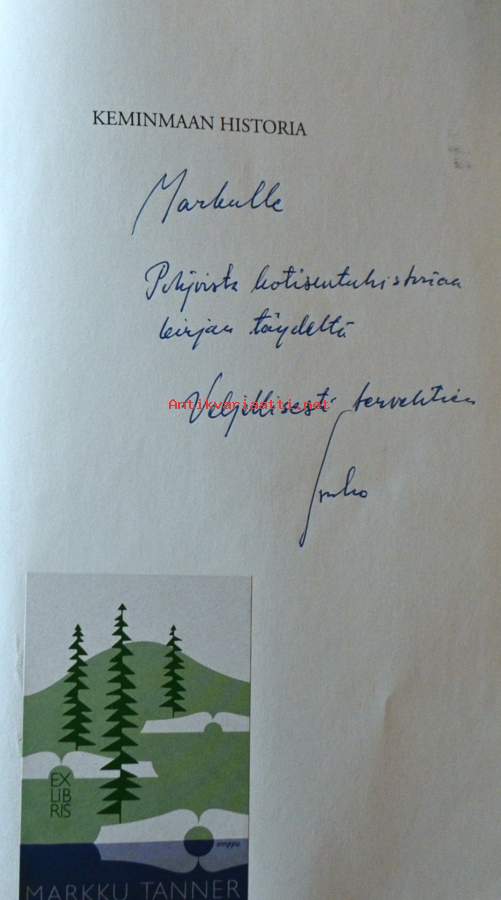 KEMINMAAN HISTORIA
Markulle
Pohjoista kotiseutuhistoriaa
kirjan täydeltä
Veljellisesti tervehtien
Antikvariaatti.net
Jouko
EX
LIB
RIS
MARKKU TANNER